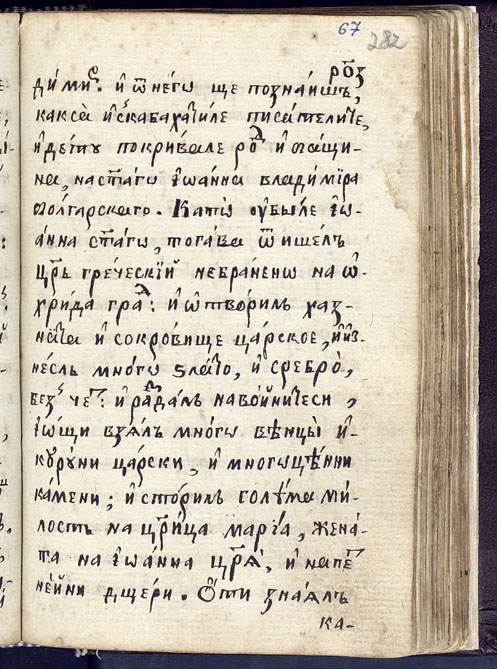 67
282
роз
дими с. и ѿ негѡ ще познаишъ,
какса искабахатиле писателите,
и дету покривале род и ѻтащи-
на, на стаго іѡанна владимїра
болгарскаго. Катѡ ѹбыле іѡ-
анна стаго, тогава ѿишелъ
црь греческій небраненѡ на ѡ-
хрида град: и ѡтворилъ хаз-
ната и сокровище царское, и из-
несль многѡ ѕлато, и сребро,
без чет: и раздалъ на войнитеси,
іѡщи взялъ многѡ вѣнцы и
куруни царски, и многоцѣнни
камени; и сторилъ голѣма ми-
лость на црица марїа, жена-
та на іѡанна цря, и на пет
нейни дщери. Ѻти зналъ
ка-